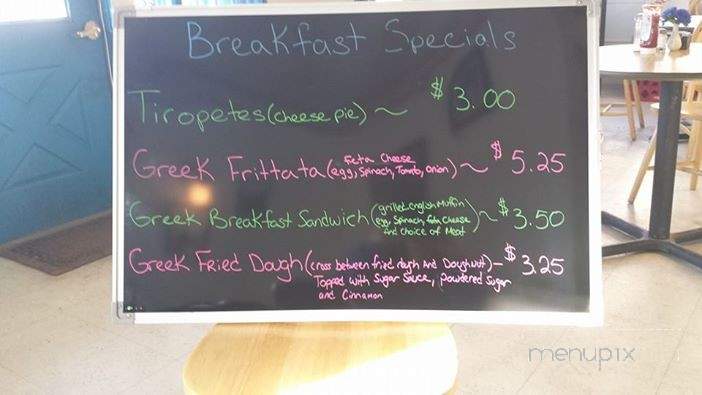 Breakfast Specials
Tiropetes (cheese pie) ~ $3.00
Greek Frittata (egg, Spinach, Tomato, onion) ~ $5.25
Feta Cheese
Greek Breakfast Sandwich (grilled english Muffin ~ $3.50
egg, Spinach, feta Cheese
And choice of Meat)
Greek Fried Dough (cross between fried dough And Doughnut) - $3.25
Topped with Sugar Sauce, powdered Sugar
and Cinnamon
menupix